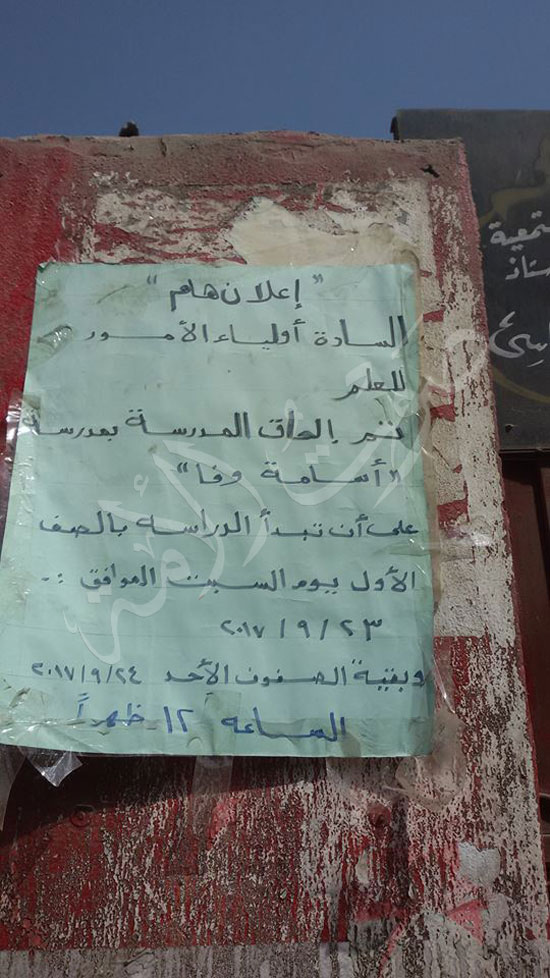 "إعلان هام"
السادة أولياء الأمور
للعلم
تم إلحاق المدرسة بمدرسة
"أسامة وفا"
على أن تبدأ الدراسه بالصف
الأول يوم السبت الموافق :-
٢٠١٧ / ٩ / ٢٣
وبقية الصفوف الأحد ٢٠١٧/٩/٢٤
الساعه ١٢ ظهراً
صوت الأمة